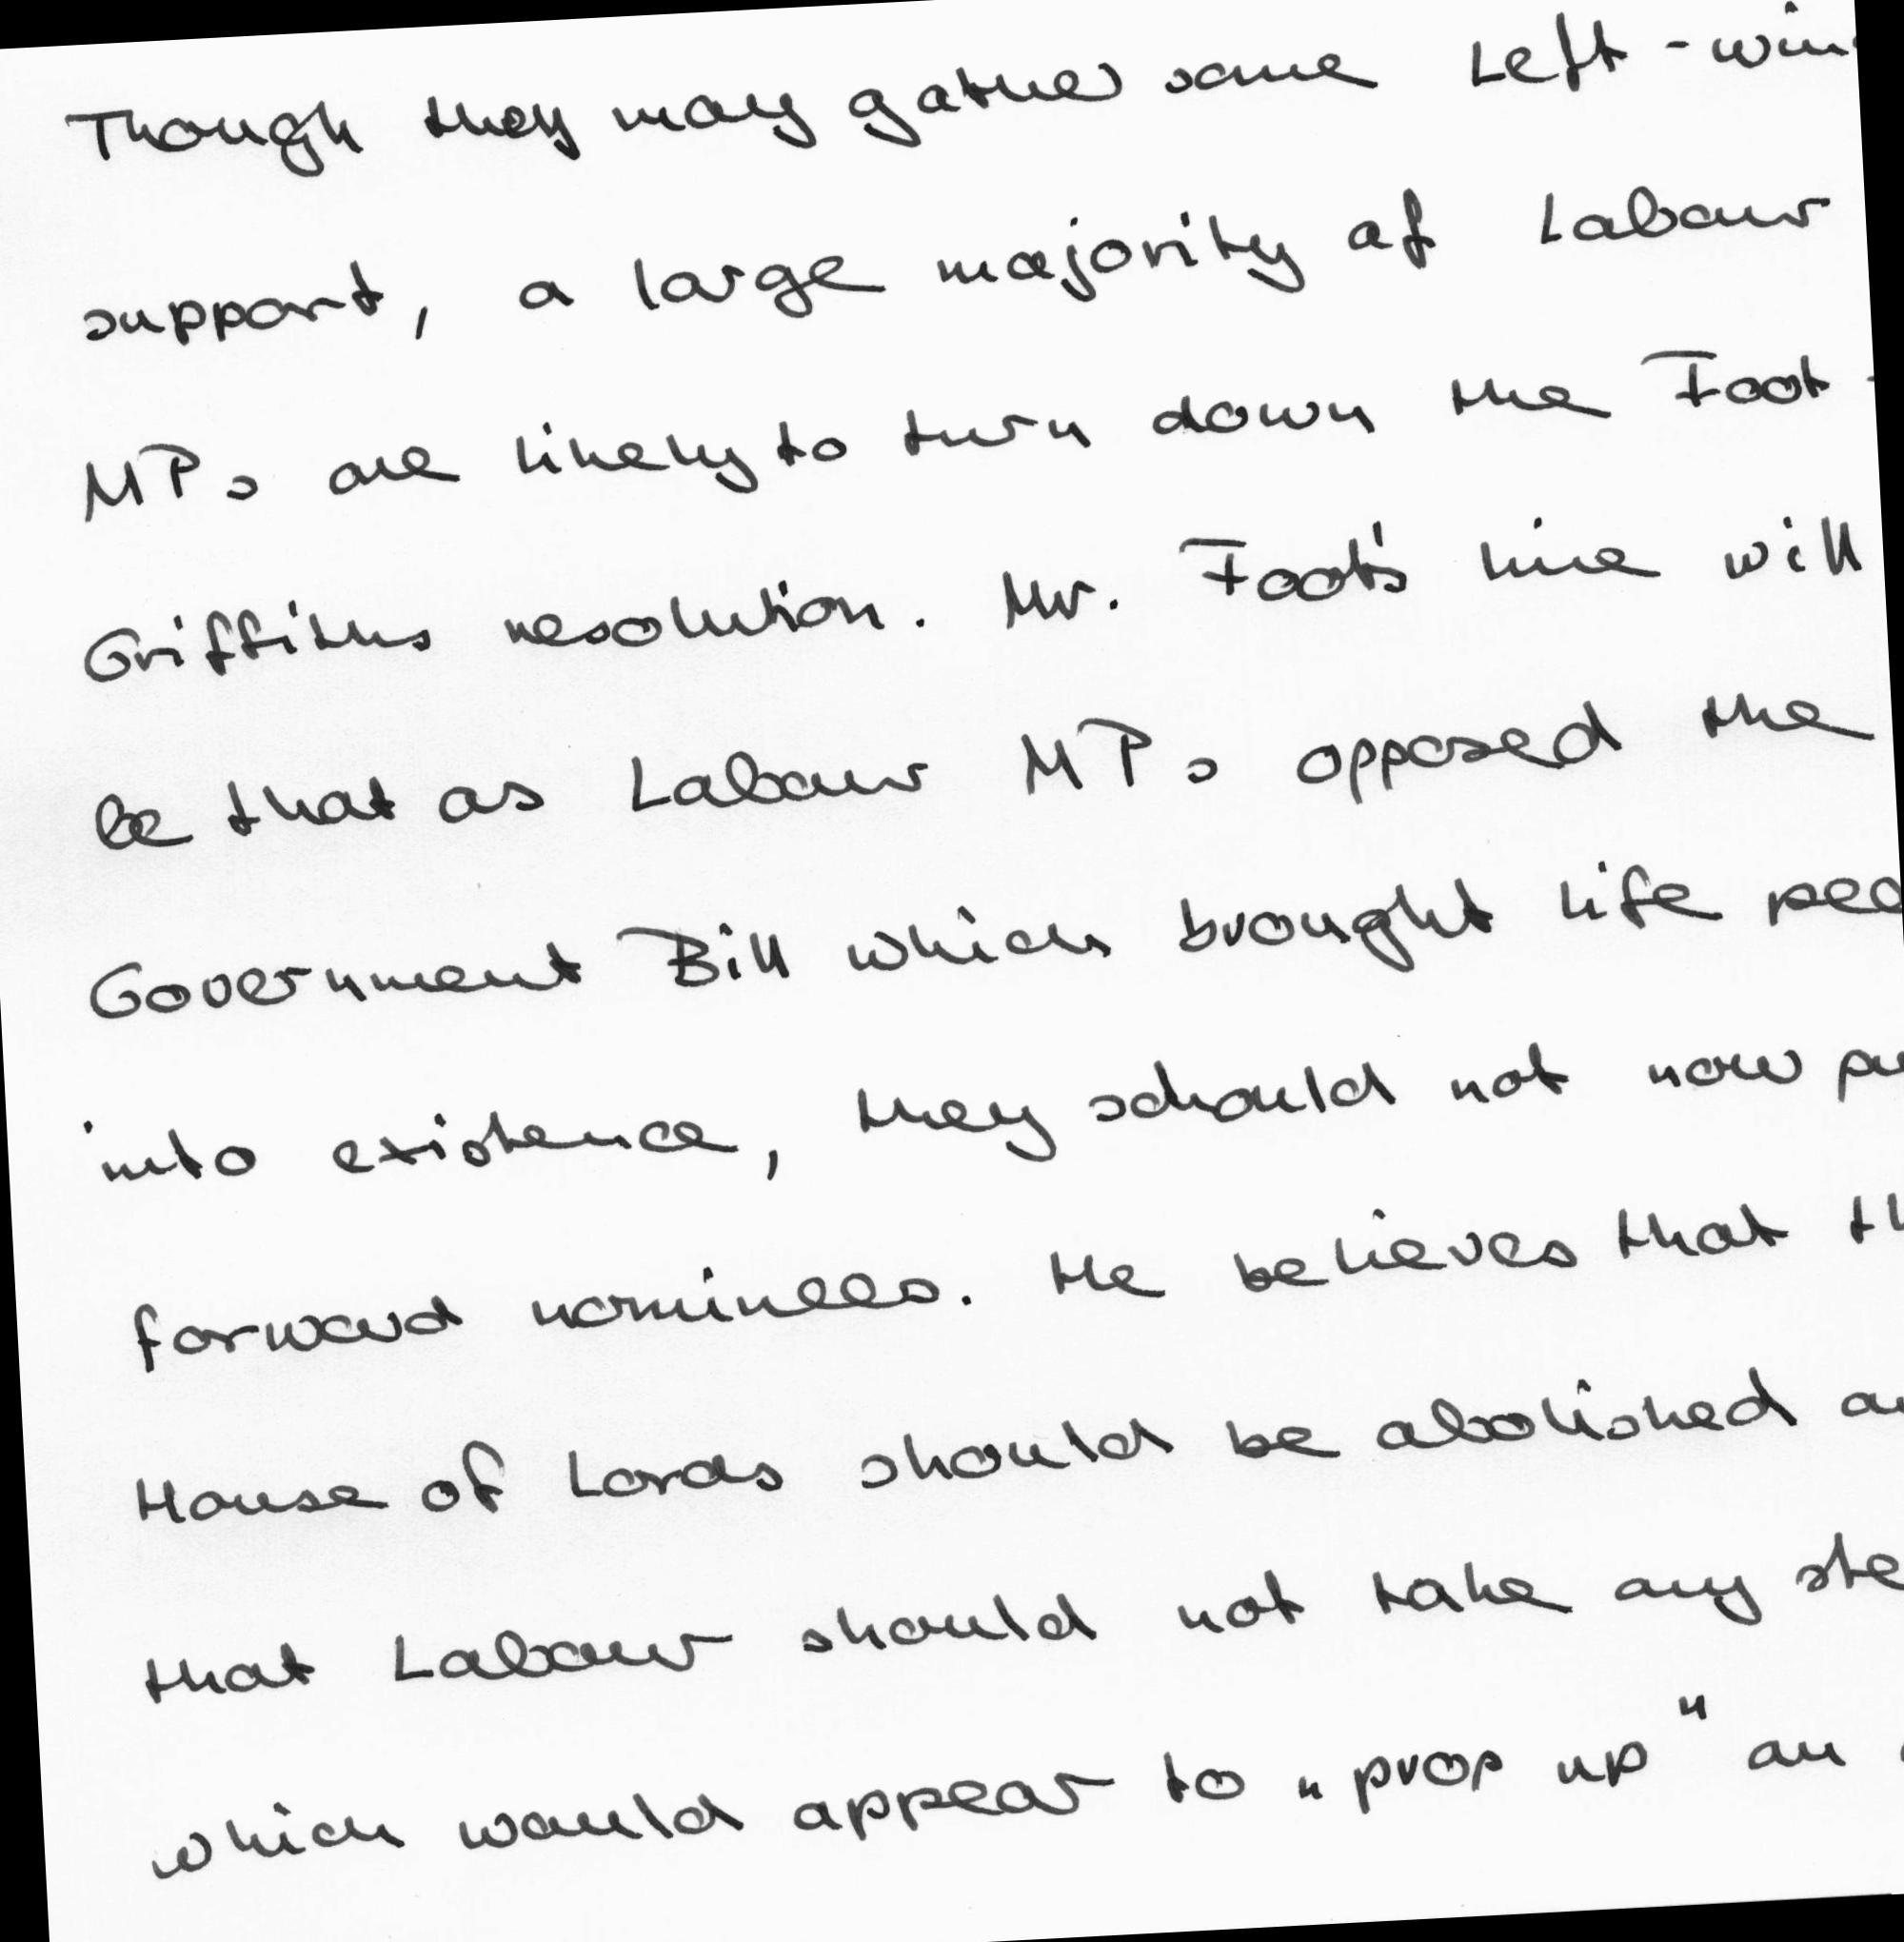 Though they may gather some Left-win
support, a large majority of Labour
MPs are likely to turn down the Foot-
Griffiths resolution. Mr. Foot's line will
be that as Labour MPs opposed the
Government Bill which brought life pee
into existence, they schould not now pu
forward nominees. He believes that th
House of Lords should be abolished an
that Labour should not take any ste
which would appear to „prop up" an